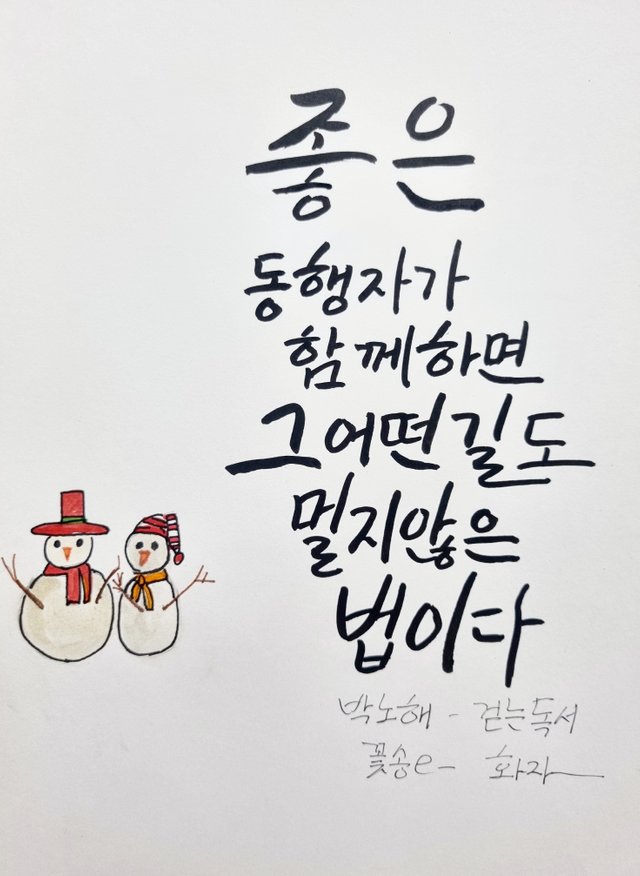 좋은
동행자가
함께하면
그어떤길도
멀지않은
법이다
박노해 - 걷는독서
꽃송e- 화자